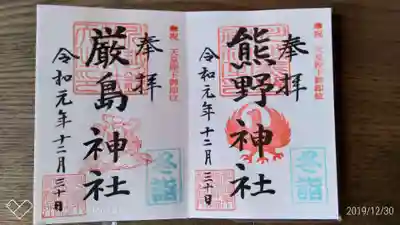 奉拝
熊野神社
令和元年十二月三十日
冬詣
奉拝
厳島神社
令和元年十二月三十日
冬詣
2019/12/30